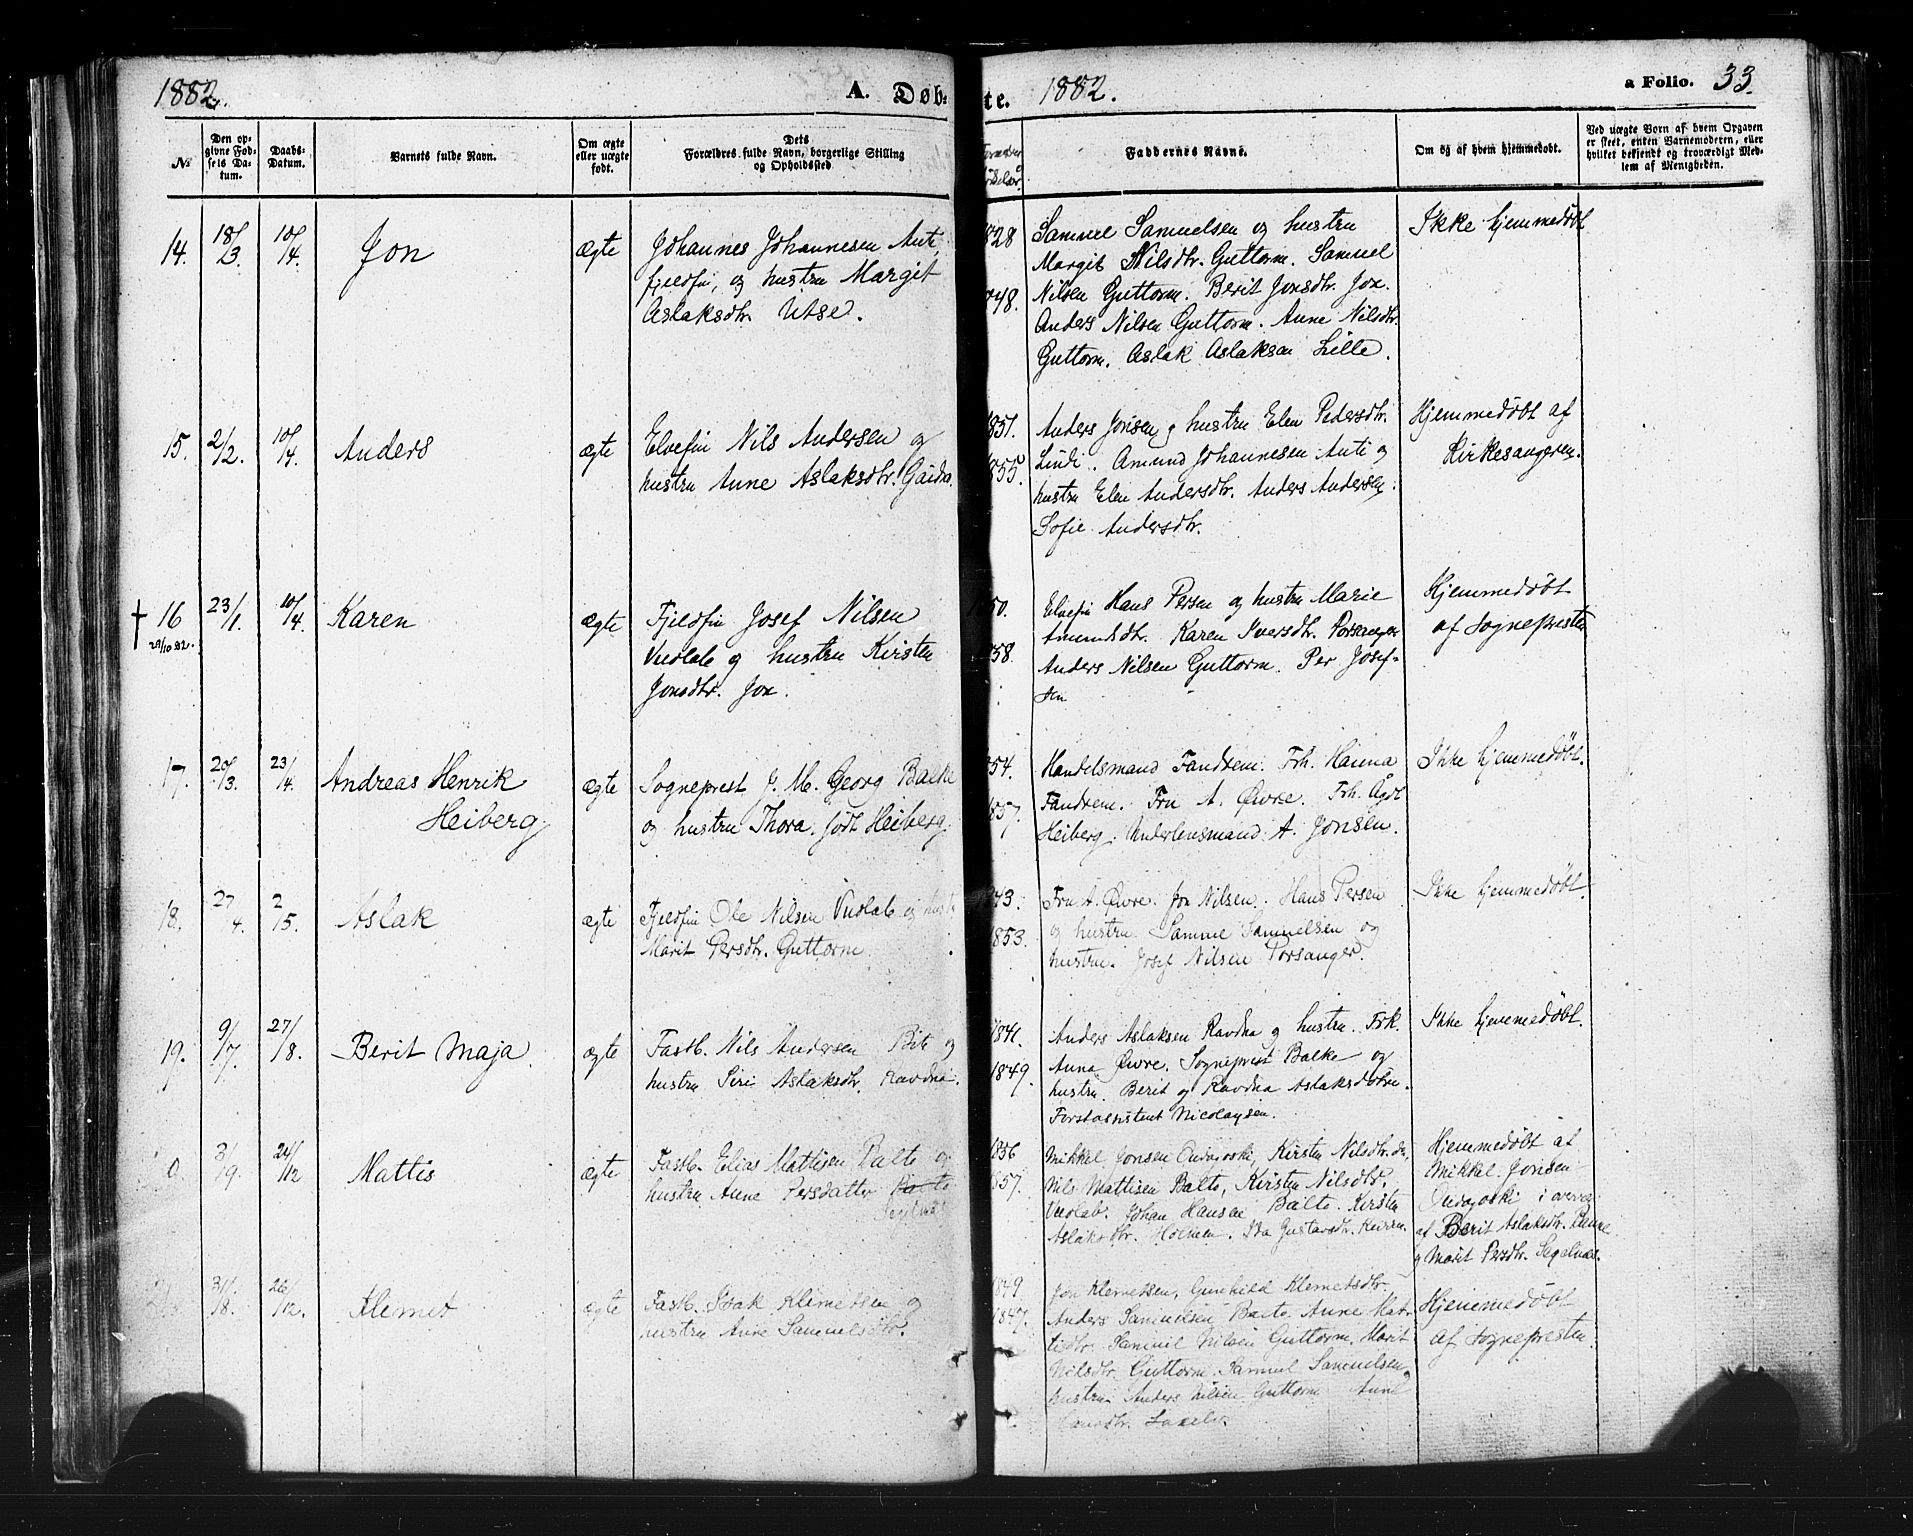 1882.
A. Døb-
te.
1882.
a Folio. 33.
№
Den op-
givne Fød-
sels Da-
tum.
Daabs-
Datum.
Barnets fulde Navn.
Om ægte
eller uægte
født.
Dets
Forældres fulde Navn, borgerlige Stilling
og Opholdssted.
Faddernes Navne.
Om og af hvem hjemmedøbt.
Ved uægte Børn af hvem Opgaven
er skeet, enten Barnemoderen, eller
hvilket bekjendt og troværdigt Med-
lem af Menigheden.
14.
18/3.
10/4.
Jon
ægte
Johannes Johannesen Anti
fjeldfin, og hustru Margit
Aslaksdtr. Utse.
1828
1848.
Samuel Samuelsen og hustru
Margit Nilsdtr. Guttorm. Samuel
Nilsen Guttorm. Berit Jonsdtr. Jox.
Anders Nilsen Guttorm. Anne Nilsdtr.
Guttorm. Aslak Aslaksen Lille.
Ikke hjemmedøbt
15.
2/2.
10/4.
Anders
ægte
Elvefin Nils Andersen og
hustru Anne Aslaksdtr. Gaidna.
1851.
1855.
Anders Jonsen og hustru Elen Pedersdtr.
Lindi. Amund Johannesen Anti og
hustru Elen Andersdtr. Anders Andersen
Sofie Andersdtr.
Hjemmedøbt af
Kirkesangeren.
† 16
29/10 82.
23/1.
10/4.
Karen
ægte
Fjeldfin Josef Nilsen
Vuolab og hustru Kirsten
Jonsdtr. Jox.
1850.
1858.
Elvefin Hans Persen og hustru Marie
Amundsdtr. Karen Iversdtr. Porsanger
Anders Nilsen Guttorm. Per Josef-
sen
Hjemmedøbt
af Sognepresten
17.
20/3.
23/4.
Andreas Henrik
Heiberg
ægte
Sogneprest J. M. Georg Balke
og hustru Thora, født Heiberg.
1854.
1857.
Handelsmand Fandrem. Frk. Hanna
Fandrem. Fru A. Øwre. Frk. Ågot
Heiberg. Underlensmand A. Jonsen.
Ikke hjemmedøbt.
18.
27/4.
2/5.
Aslak
ægte
Fjeldfin Ole Nilsen Vuolab og hustru
Marit Persdtr. Guttorm.
1843.
1853.
Fru A. Øwre. Jon Nilsen. Hans Persen
og hustru. Samuel Samuelsen og
hustru. Josef Nilsen Porsanger.
Ikke hjemmedøbt.
19.
9/7.
27/8.
Berit Maja
ægte
Fastb. Nils Andersen Biti og
hustru Siri Aslaksdtr. Ravdna.
1841.
1849.
Anders Aslaksen Ravdna og hustru. Frk.
Anna Øwre. Sogneprest Balke og
hustru. Berit og Ravdna Aslaksdøtre.
Forstassistent Nicolaysen.
Ikke hjemmedøbt.
0.
3/9.
24/12
Mattis
ægte
Fastb. Elias Mattisen Balto og
hustru Anne Persdatter Balto
1856
1857.
Mikkel Jonsen, Kirsten Nilsdtr.
Nils Mattisen Balto, Kirsten Nilsdtr.
Vuolab. Johan Hansen Balto. Kirsten
Aslaksdtr. Holmen. Ida Gustavsdtr.
Hjemmedøbt af
Mikkel Jonsen
i overvær
af Berit Aslaksdtr.
og Marit Persdtr. Segelnæs.
31/8.
26/12.
Klemet
ægte
Fastb. Isak Klemetsen og
hustru Anne Samuelsdtr.
1849
1847.
Jon Klemetsen, Gunhild Klemetsdtr.
Anders Samuelsen Balto. Anne Mat-
tisdtr. Samuel Nilsen Guttorm. Marit
Nilsdtr. Guttorm. Samuel Samuelsen
hustru. Anders Nilsen Guttorm. Anne
Hjemmedøbt
af Sognepresten.